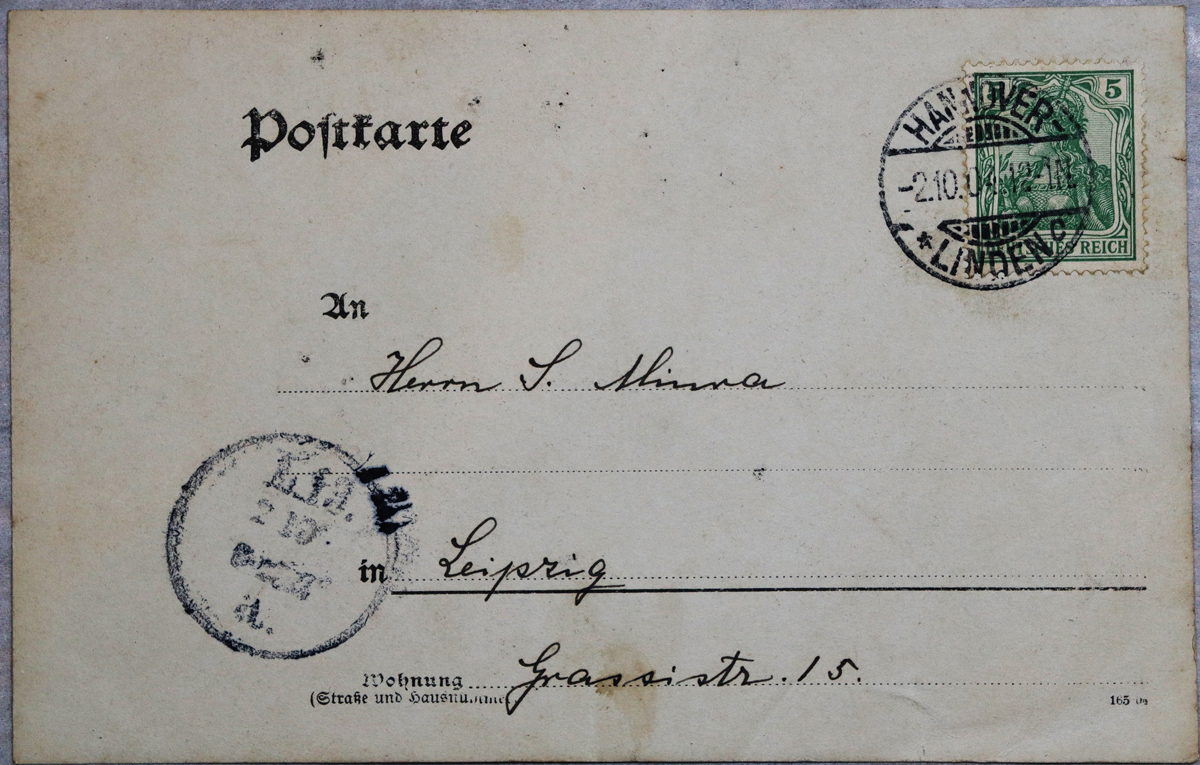 Postkarte
5
HANNOVER-
-2.10.04.12-1N.
* LINDEN c
REICH
An
Herrn S. Minra
in Leipzig
Wohnung Grassistr. 15.
(Straße und Hausnummer
165